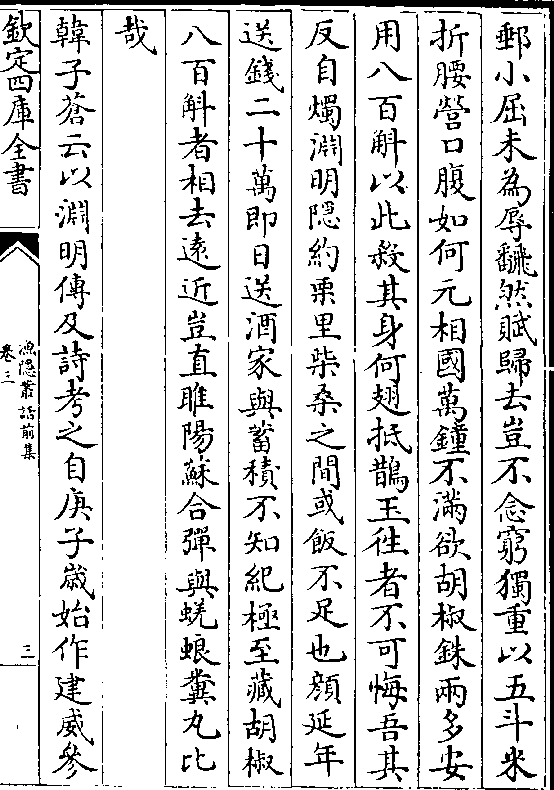 郵小屈未為辱飜然賦歸去豈不念窮獨重以五斗米
折腰營口腹如何元相國萬鐘不滿欲胡椒銖兩多安
用八百斛以此殺其身何翅抵鵲玉徃者不可悔吾其
反自燭淵明隠約栗里柴桑之間或飯不足也顔延年
送錢二十萬即日送酒家與蓄積不知紀極至藏胡椒
八百斛者相去遠近豈直睢陽蘇合彈與蜣蜋糞丸比
哉
韓子蒼云以淵明傳及詩考之自庚子歳始作建威參
欽定四庫全書
漁隠叢話前集
卷三
三